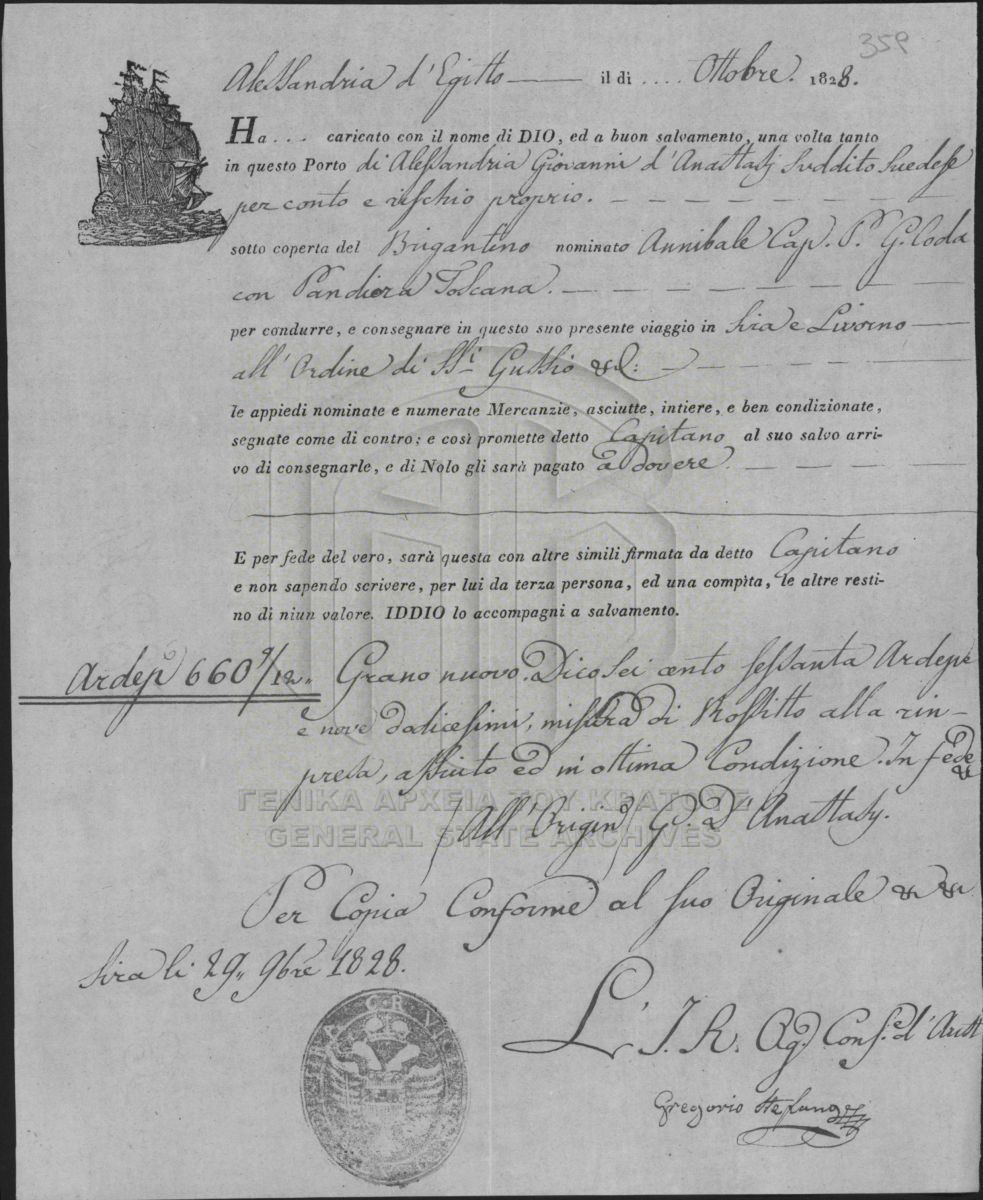 359
Alessandria d'Egitto —— il dì .... Ottobre. 1828.
Ha ... caricato con il nome di DIO, ed a buon salvamento, una volta tanto
in questo Porto di Alessandria Giovanni d'Anastasj Suddito Suedese
per conto e rischio proprio. — — —
sotto coperta del Brigantino nominato Annibale Cap. P. G. Coda
con Bandiera Toscana. — — —
per condurre, e consegnare in questo suo presente viaggio in Sira e Livorno ——
all'Ordine di SSi Gussio &C: — — —
le appiedi nominate e numerate Mercanzie, asciutte, intiere, e ben condizionate,
segnate come di contro; e così promette detto Capitano al suo salvo arri-
vo di consegnarle, e di Nolo gli sarà pagato a dovere. — — —
E per fede del vero, sarà questa con altre simili firmata da detto Capitano
e non sapendo scrivere, per lui da terza persona, ed una compìta, le altre resti-
no di niun valore. IDDIO lo accompagni a salvamento.
Ardepi 660 9/12 „ Grano nuovo. Dico sei cento sessanta Ardepi
e nove dodicesimi, misura di Rossitto alla rin-
presa, assiuto ed in ottima Condizione. In fede &
ΓΕΝΙΚΑ ΑΡΧΕΙΑ ΤΟΥ ΚΡΑΤΟΥΣ
GENERAL STATE ARCHIVES
/All'Origin/ G. D'Anastasy.
Per Copia Conforme al suo Originale & &
Sira li 29„ 9bre 1828.
L'I. R. Ag. Cons.e d'Aust
Gregorio
C. R. VI